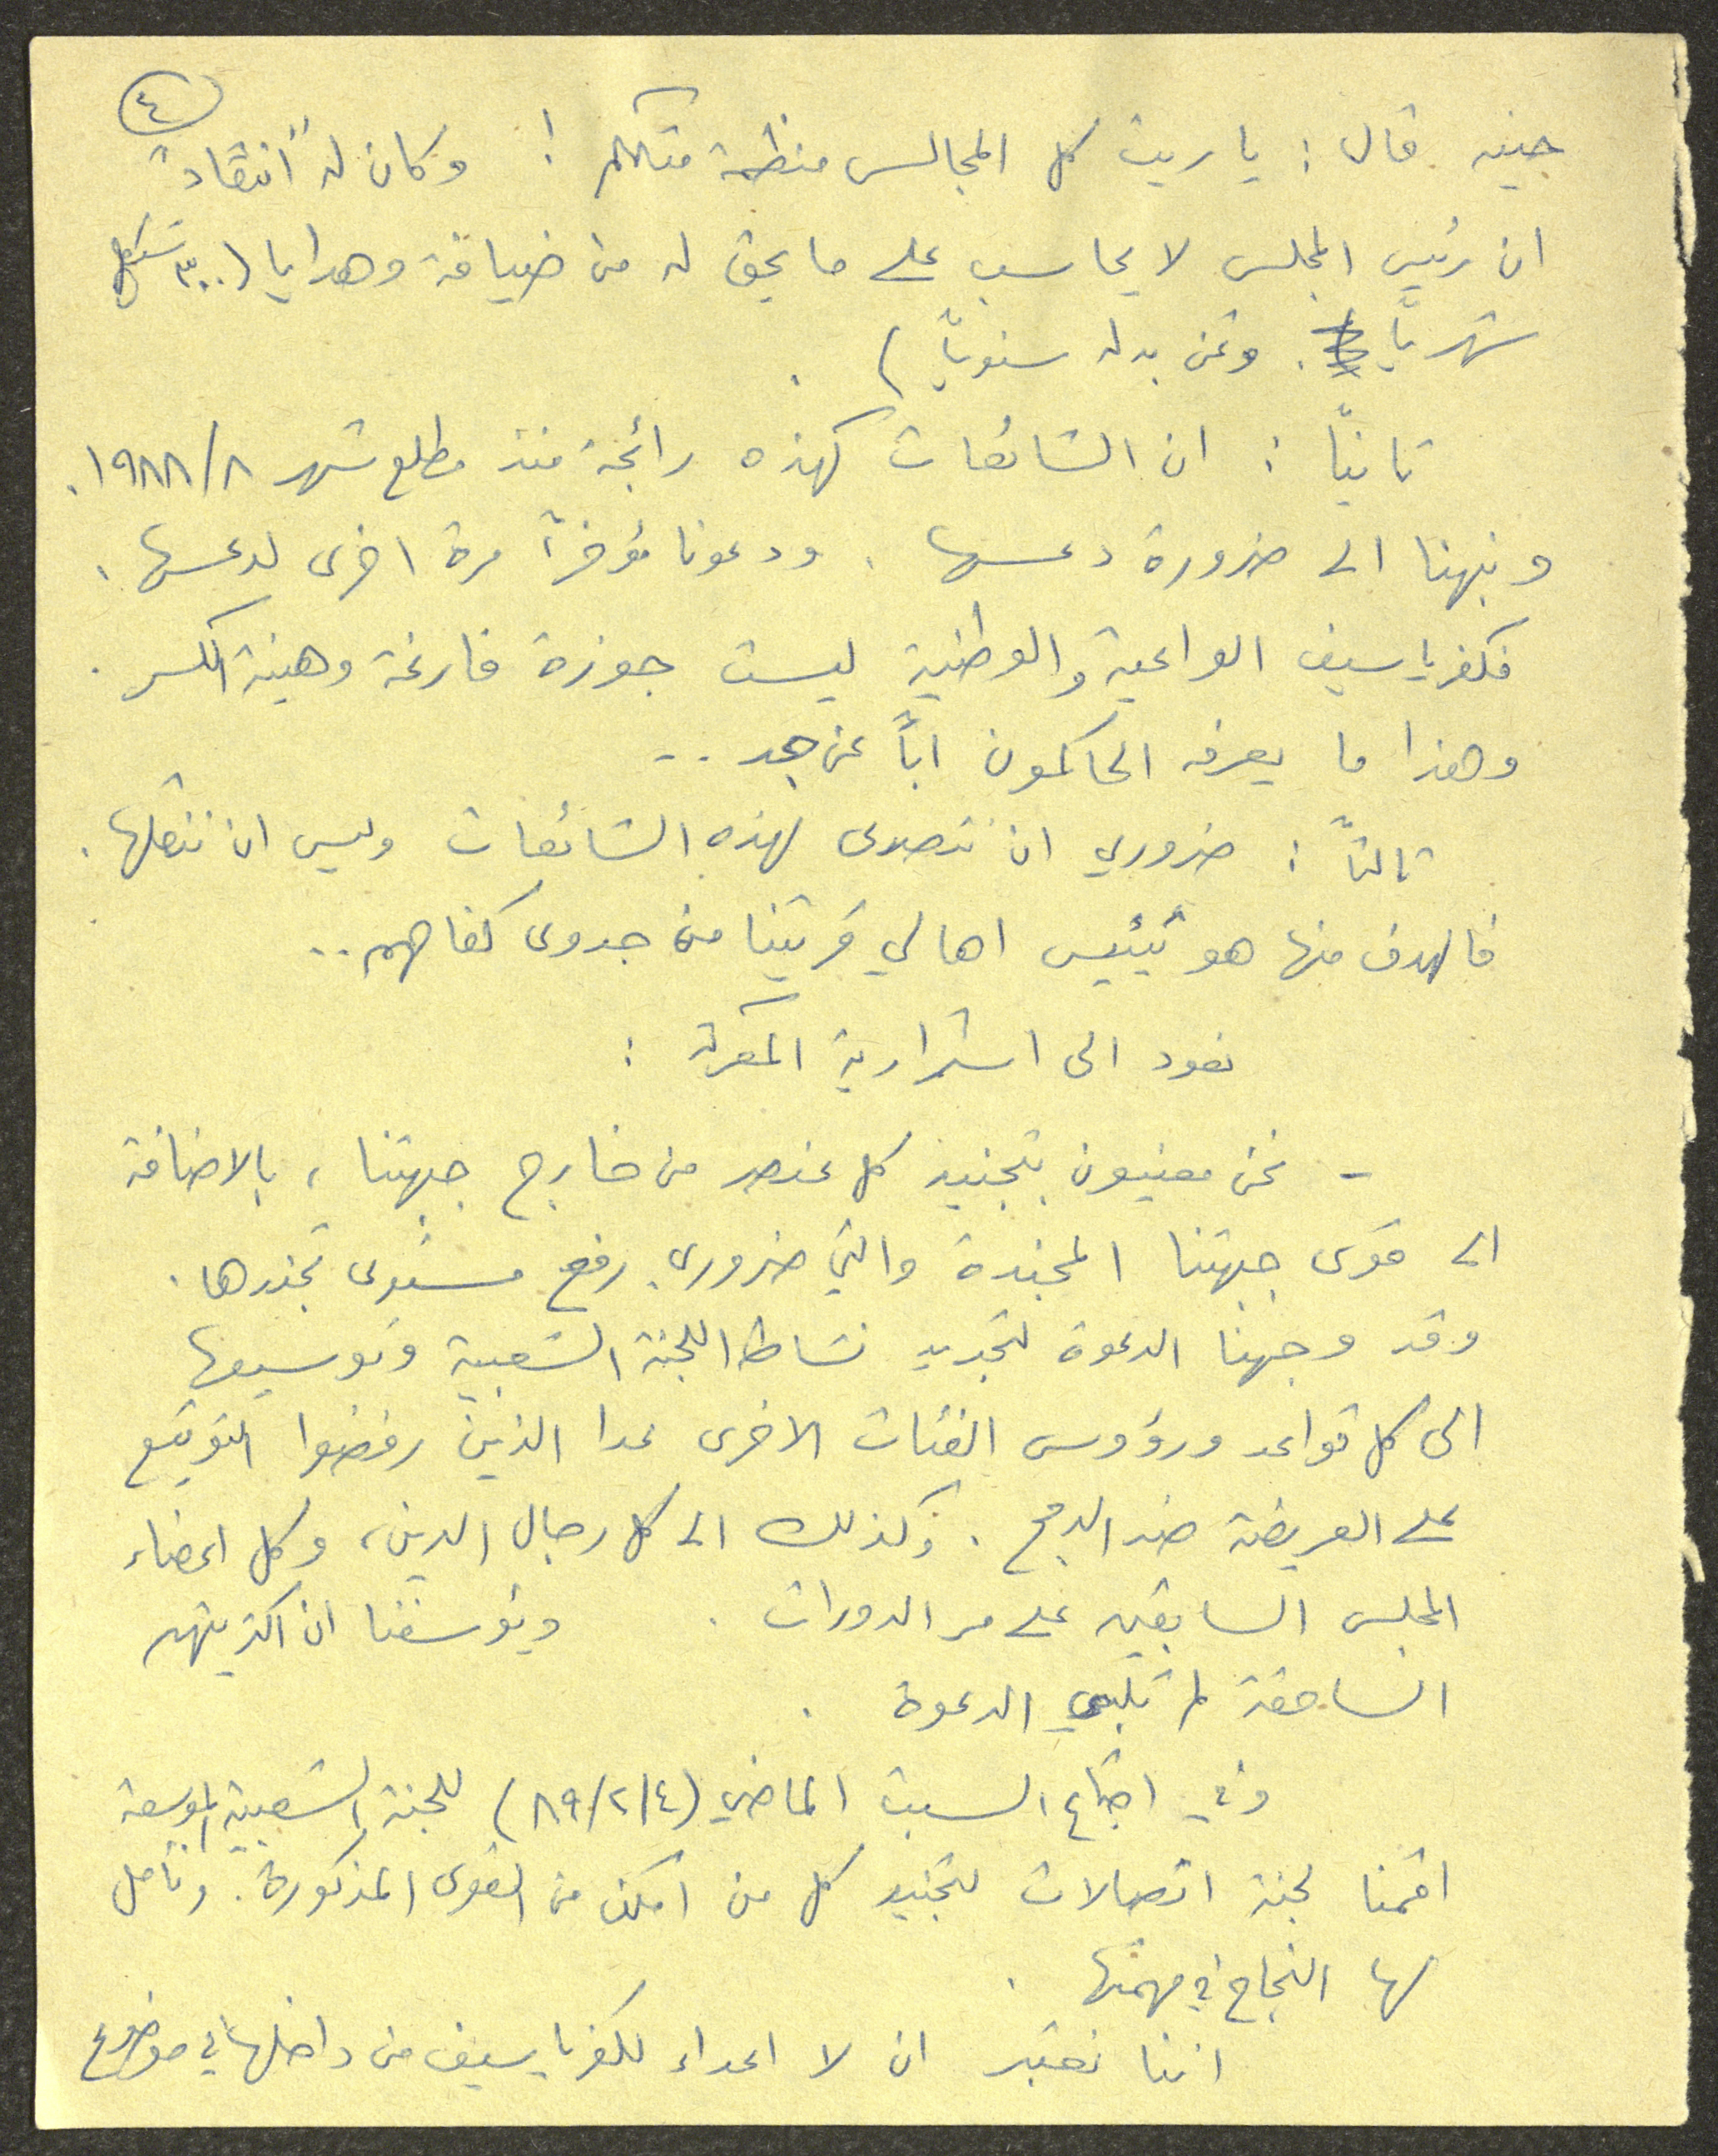 ٤
حينه قال: يا ريت كل المجالس منظمة مثلكم! وكان له "انتقاد"
ان رئيس المجلس لا يحاسب على ما يحق له من ضيافة وهدايا (٣٠٠ شيكل
شهريًا. وثمن بدله سنويًا).
ثانيًا: ان الشائعات كهذه رائجة منذ مطلع شهر ١٩٨٨/٨.
ونبهنا الى ضرورة دعسها. ودعونا مؤخرًا مرة اخرى لدعسها.
فكفرياسيف الواعية والوطنية ليست جوزة فارغة وهينة الكسر.
وهذا ما يعرفه الحاكمون ابًا عن جد..
ثالثًا: ضروري ان نتصدى لهذه الشائعات وليس ان ننقلها.
فالهدف منها هو تيئيس اهالي قريتنا من جدوى كفاحهم..
نعود الى استمرارية المعركة:
- نحن معنيون بتجنيد كل عنصر من خارج جبهتنا، بالاضافة
الى قوى جبهتنا المجندة والتي ضروري رفع مستوى تجندها.
وقد وجهنا الدعوة لتجديد نشاط اللجنة الشعبية وتوسيعها
الى كل قواعد ورؤوس الفئات الاخرى عدا الذين رفضوا التوقيع
على العريضة ضد الدمج. وكذلك الى كل رجال الدين، وكل اعضاء
المجلس السابقين على مر الدورات. ويؤسفنا ان اكثريتهم
الساحقة لم تلبي الدعوة.
وفي اجتماع السبت الماضي (٨٩/٢/٤) للجنة الشعبية الموسعة
اقمنا لجنة اتصالات لتجنيد كل من امكن من القوى المذكورة. ونأمل
لها النجاح في مهمتها.
اننا نعتبر ان لا اعداء لكفرياسيف من داخلها في موضوع